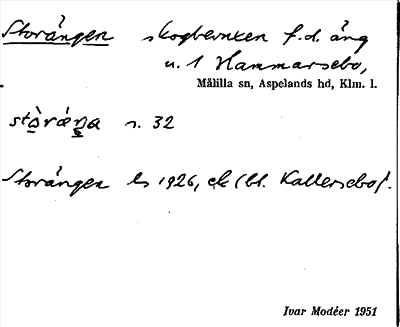 Storängen skogbevuxen f.d. äng
u. 1 Hammarsebo,
Målilla sn, Aspelands hd, Klm. l.
stòràŋa s. 32
Storängen ls 1926, ek (bl. Kallersebo).
Ivar Modéer 1951